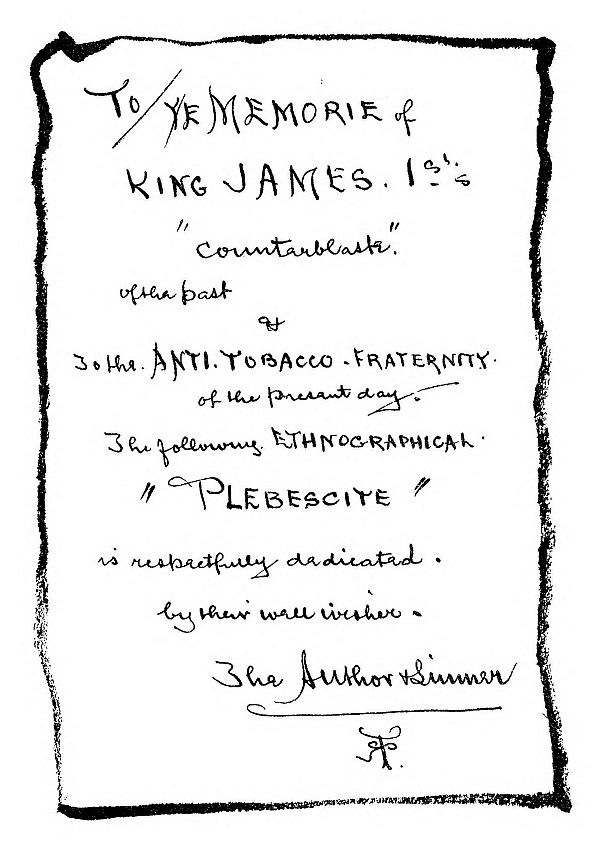 To YE MEMORIE of
KING JAMES. 1st's
"Counterblaste".
of the past
&
To the. ANTI. TOBACCO. FRATERNITY.
of the present day.
The following. ETHNOGRAPHICAL.
"PLEBESCITE"
is respectfully dedicated.
by their well wisher.
The Author & Sinner